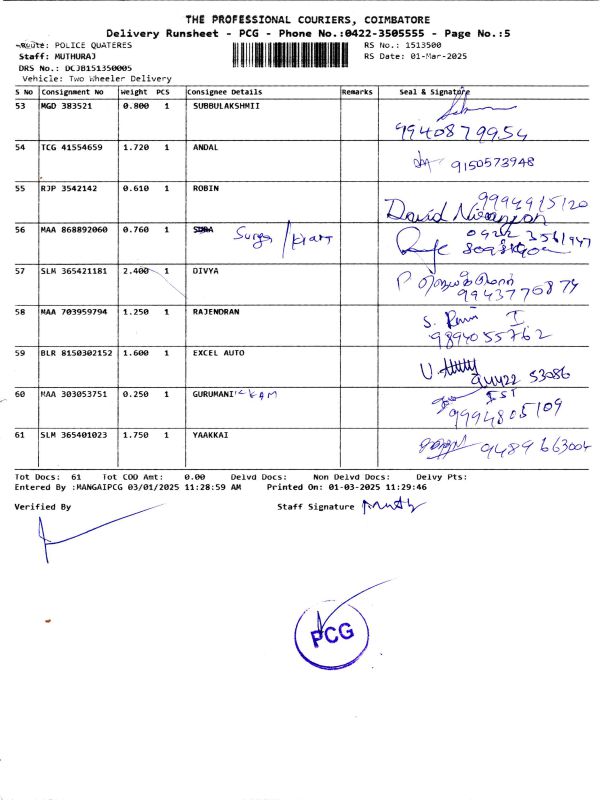 THE PROFESSIONAL COURIERS, COIMBATORE
Delivery Runsheet - PCG - Phone No.:0422-3505555 - Page No.:5
Route: POLICE QUATERES RS No.: 1513500
Staff: MUTHURAJ RS Date: 01-Mar-2025
DRS No.: DCJB151350005
Vehicle: Two Wheeler Delivery
S No Consignment No Weight PCS Consignee Details Remarks Seal & Signature
53 MGD 383521 0.800 1 SUBBULAKSHMII
9940879954
54 TCG 41554659 1.720 1 ANDAL 9150573948
55 RJP 3542142 0.610 1 ROBIN 9994915120
David
56 MAA 868892060 0.760 1 Surya
57 SLM 365421181 2.400 1 DIVYA
9943770874
58 MAA 703959794 1.250 1 RAJENDRAN S.
9894055762
59 BLR 8150302152 1.600 1 EXCEL AUTO
53086
60 MAA 303053751 0.250 1 GURUMANI
9994805109
61 SLM 365401023 1.750 1 YAAKKAI 9489663004
Tot Docs: 61 Tot COD Amt: 0.00 Delvd Docs: Non Delvd Docs: Delvy Pts:
Entered By :MANGAIPCG 03/01/2025 11:28:59 AM Printed On: 01-03-2025 11:29:46
Verified By Staff Signature
PCG